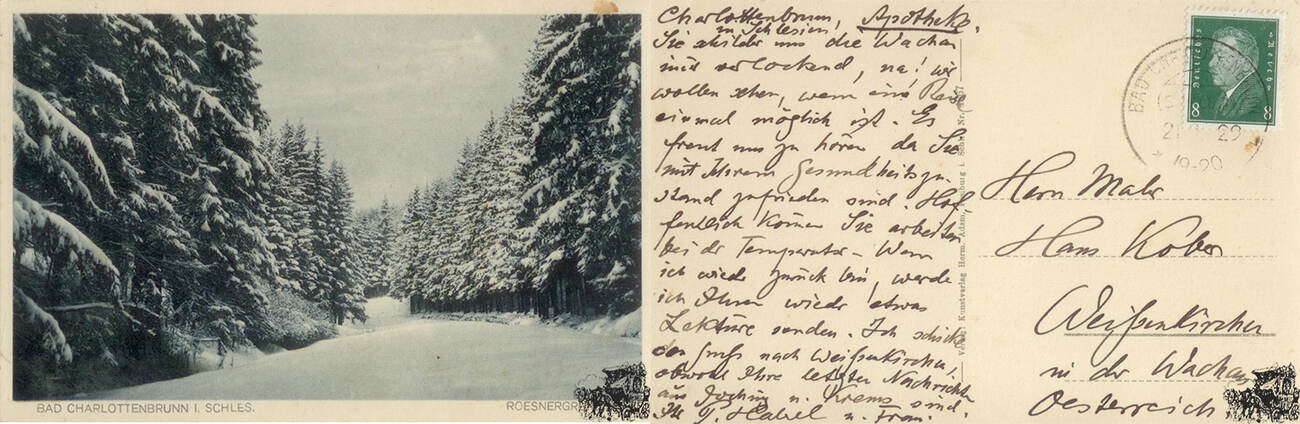 BAD CHARLOTTENBRUNN I. SCHLES.
ROESNERGR
Charlottenbrunn, Apotheke
in Schlesien.
Sie schilder uns die Wachau
verlockend, na! wir
wollen sehen, wann eine Reise
einmal möglich ist. Es
freut uns zu hören da Sie
mit Ihrem Gesundheitszu-
stand zufrieden sind. Hof-
fentlich können Sie arbeiten
bei der Temperatur. Wenn
ich wieder zurück bin, werde
ich Ihnen wieder etwas
Lektüre senden. Ich schicke
den Gruß nach Weißenkirchen,
obwohl Ihre letzten Nachrichten
aus u. Krems sind.
Ihr u. Frau.
Kunstverlag Herm. Adam, i. Schl. Nr.
Deutsches Reich
8 8
BAD
29
19-20
Herrn Maler
Hans Kober
Weißenkirchen
in der Wachau
Oesterreich